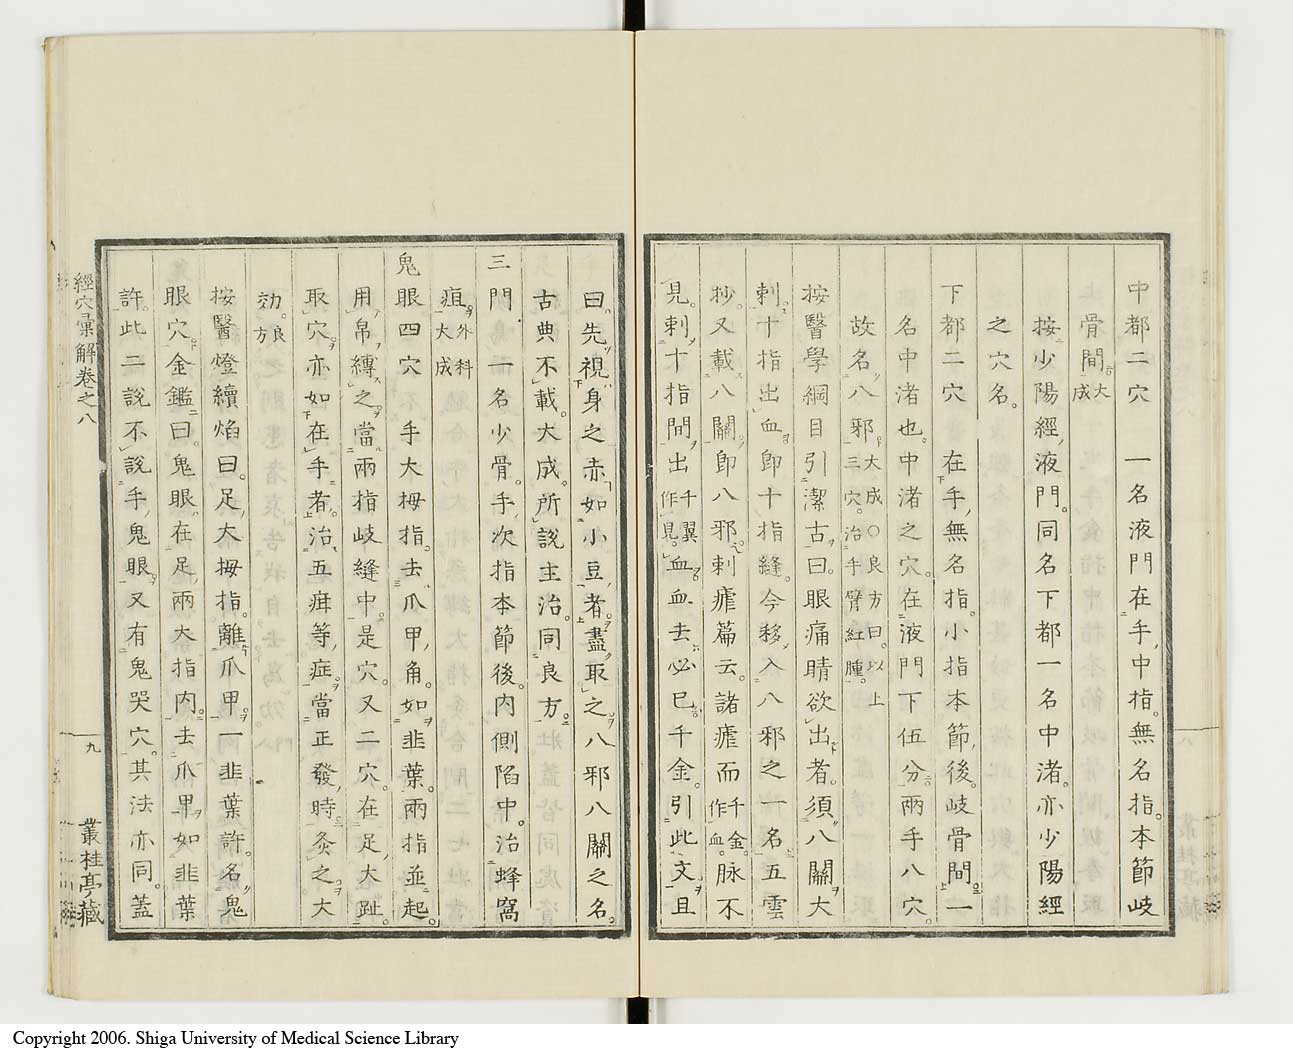 中都二穴 一名液門在手中指無名指本節岐
骨間大成
按少陽經液門同名下都一名中渚亦少陽經
之穴名
下都二穴 在手無名指小指本節後岐骨間一
名中渚也中渚之穴在液門下伍分兩手八穴
故名八邪大成〇良方曰以上三穴治手臂紅腫
按醫學綱目引潔古曰眼痛睛欲出者須八關大
刺十指出血即十指縫今移入八邪之一名五雲
抄又載八關即八邪刺瘧篇云諸瘧而千金作血脉不
見刺十指間出千翼作見血血去必已千金引此文且
曰先視身之赤如小豆者盡取之八邪八關之名
古典不載大成所說主治同良方
三門 一名少骨手次指本節後內側陷中治蜂窩
疽外科大成
鬼眼四穴 手大栂指去爪甲角如韭葉兩指並起
用帛縛之當兩指岐縫中是穴又二穴在足大趾
取穴亦如在手者治五癇等症當正發時灸之大
効良方
按醫燈續焰曰足大拇指離爪甲一韭葉許名鬼
眼穴金鑑曰鬼眼在足兩大指內去爪甲如韭葉
許此二說不說手鬼眼又有鬼哭穴其法亦同蓋
經穴彙解卷之八
九
叢桂亭藏
Copyright 2006. Shiga University of Medical Science Library